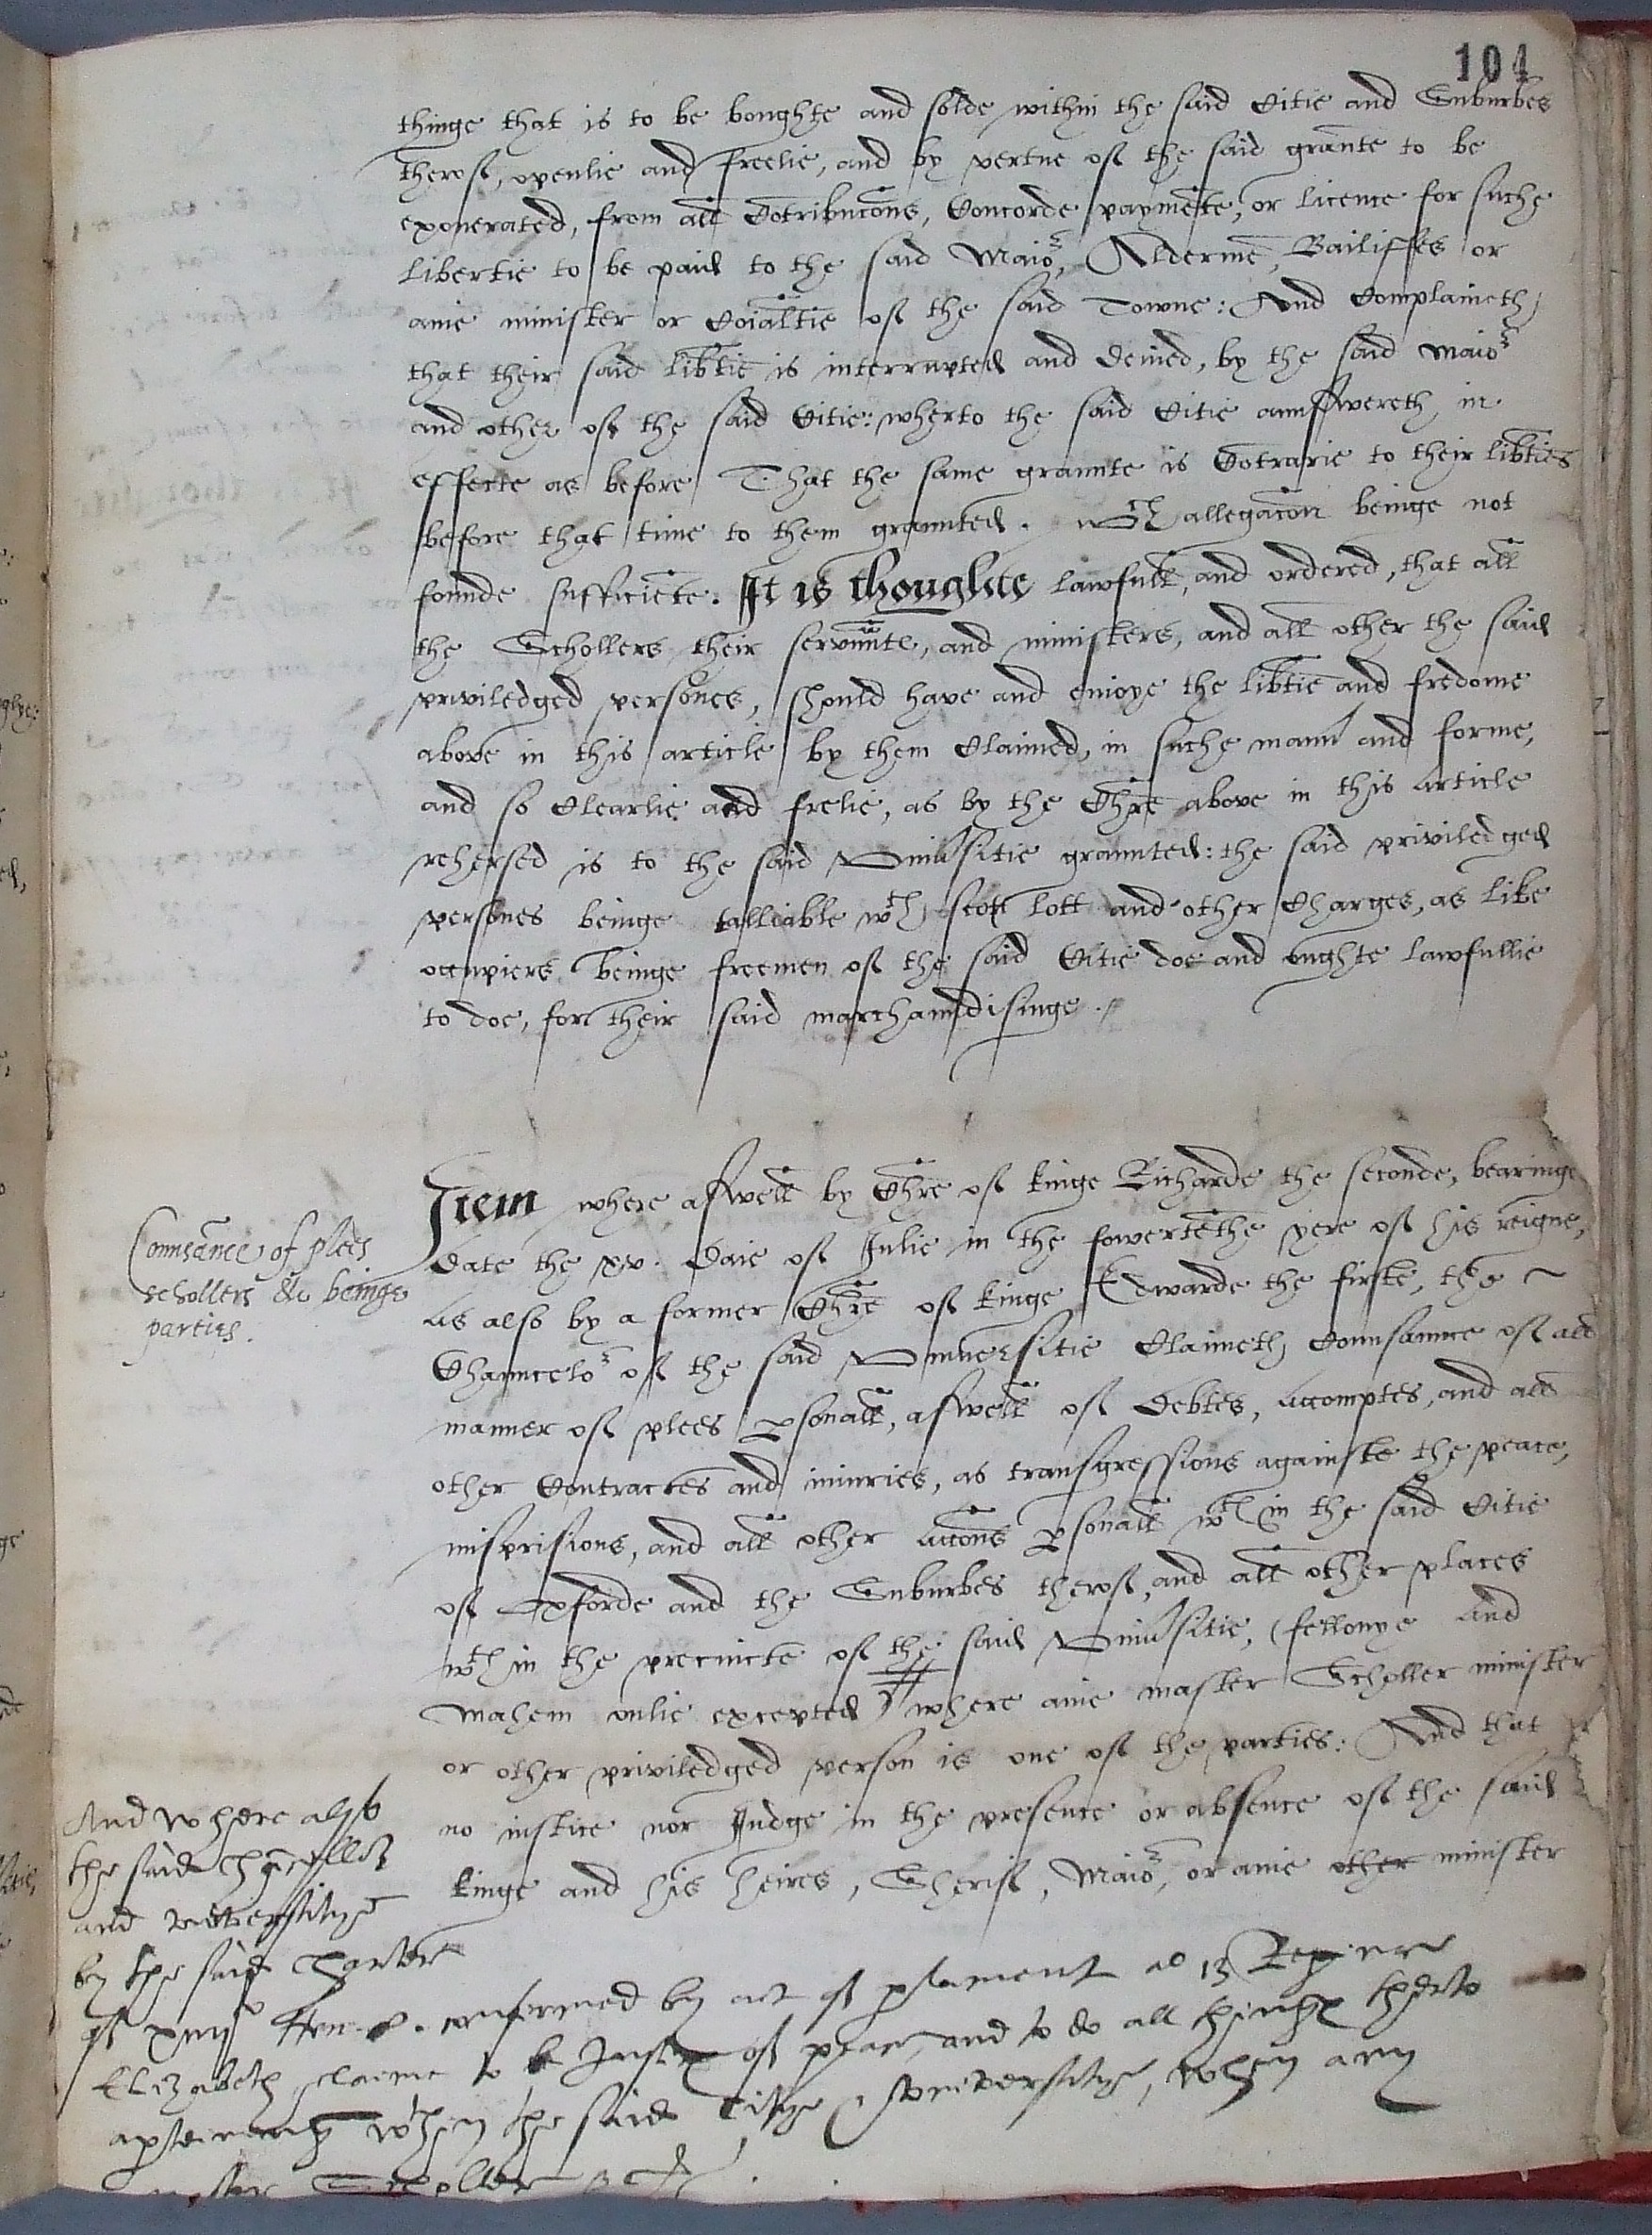 104
thinge that is to be boughte and solde within the said Citie and Suburbes
therof, openlie and freelie, and by vertue of the said graunte to be
exonerated, from all Cōtribucōns, Concorde paymēte, or licence for suche
libertie to be paid to the said Maior, Aldermē, Bailiffes or
anie minister or Coīaltie of the said Towne: And Complaineth
that their said lib̄tie is interrupted and denied, by the said Maior
and other of the said Citie: wherto the said Citie aunsswereth in
effecte as before That the same graunte is Cōtrarie to their lib̄ties
before that time to them graunted. wch allegacōn beinge not
founde sufficiēte. It is thoughte lawfull, and ordered, that all
the Schollers their servunte, and ministers, and all other the said
priviledged persones, should have and enioye the lib̄tie and fredome
above in this article by them Claimed, in suche mann' and forme,
and so Clearlie and frelie, as by the Chr̄e above in this article
rehersed is to the said Univ'sitie graunted: the said priviledged
persones beinge talliable wth scott lott and other Charges, as like
occupiers beinge freemen of the said Citie doe and oughte lawfullie
to doe, for their said marchaundisinge.
Item where aswell by Chr̄e of kinge Richarde the seconde, bearinge
date the xv. daie of Julie in the fowertēthe yere of his reigne,
as also by a former Chr̄e of kinge Edwarde the firste, the
Chauncelor of the said Universitie Claimeth Counsaunce of all
manner of plees ꝑsonall, aswell of debtes, accomptes, and all
other Contractes and iniuries, as transgressions againste the peace,
misprisions, and all other accōns ꝑsonall wth in the said Citie
of Oxforde and the Suburbes therof, and all other places
wth in the precincte of the said Univ'sitie, (fellonye and
Mahem onlie excepted) where anie master Scholler minister
or other priviledged person is one of the parties: And that
no iustice nor Judge in the presence or absence of the said
kinge and his heires, Sherif, Maior, or anie other minister
Connsance of plees
schollers &c beinge
parties.
And where also
the said Chācellor
and universitye
by the said Charter
of xiiij Hen. 8. confirmed by act of ꝑlament ao 13 Regine
Elizabeth clame to be Justices of peace, and to do all things therto
apꝑteinenge wthin the said Citye & universitye, when any
master Scholler &c